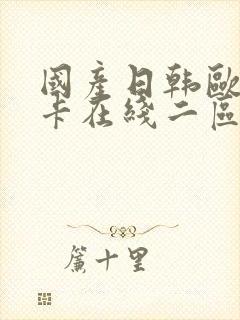 國產日韩歐
卡在綫二區
簾十里